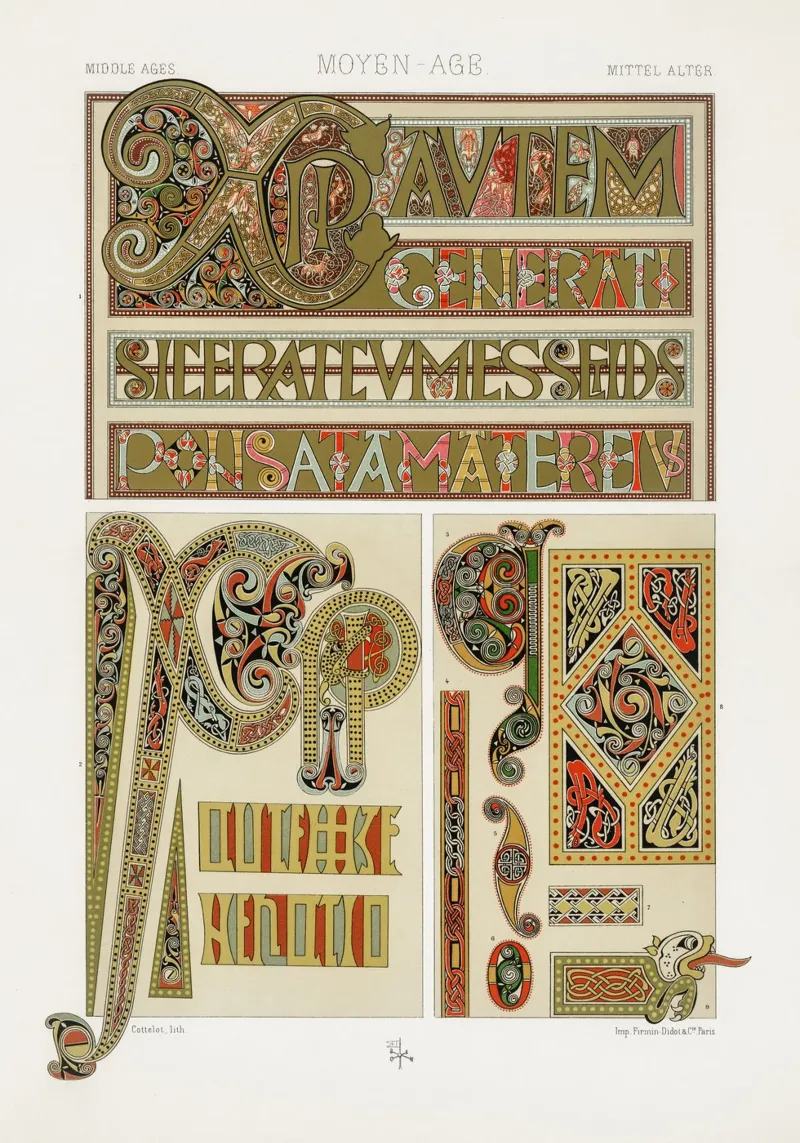 MIDDLE AGES.
MOYEN-AGE.
MITTEL ALTER.
XPI AVTEM
GENERATI
SICERATCVMESSETDIS
PONSATAMATEREIVS
1
2
XPI
AUTEM
3
4
5
6
7
8
9
Cottelot, lith.
Imp. Firmin-Didot & Cie. Paris